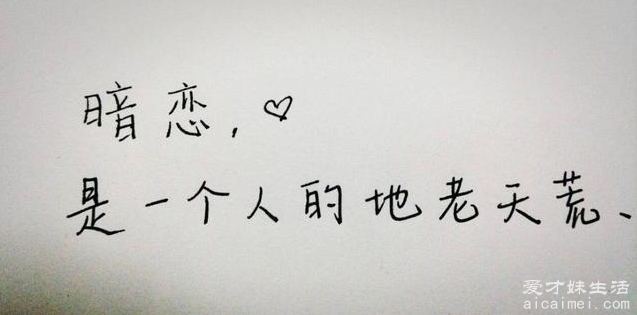 暗恋,♡
是一个人的地老天荒、
爱才妹生活
aicaimei.com